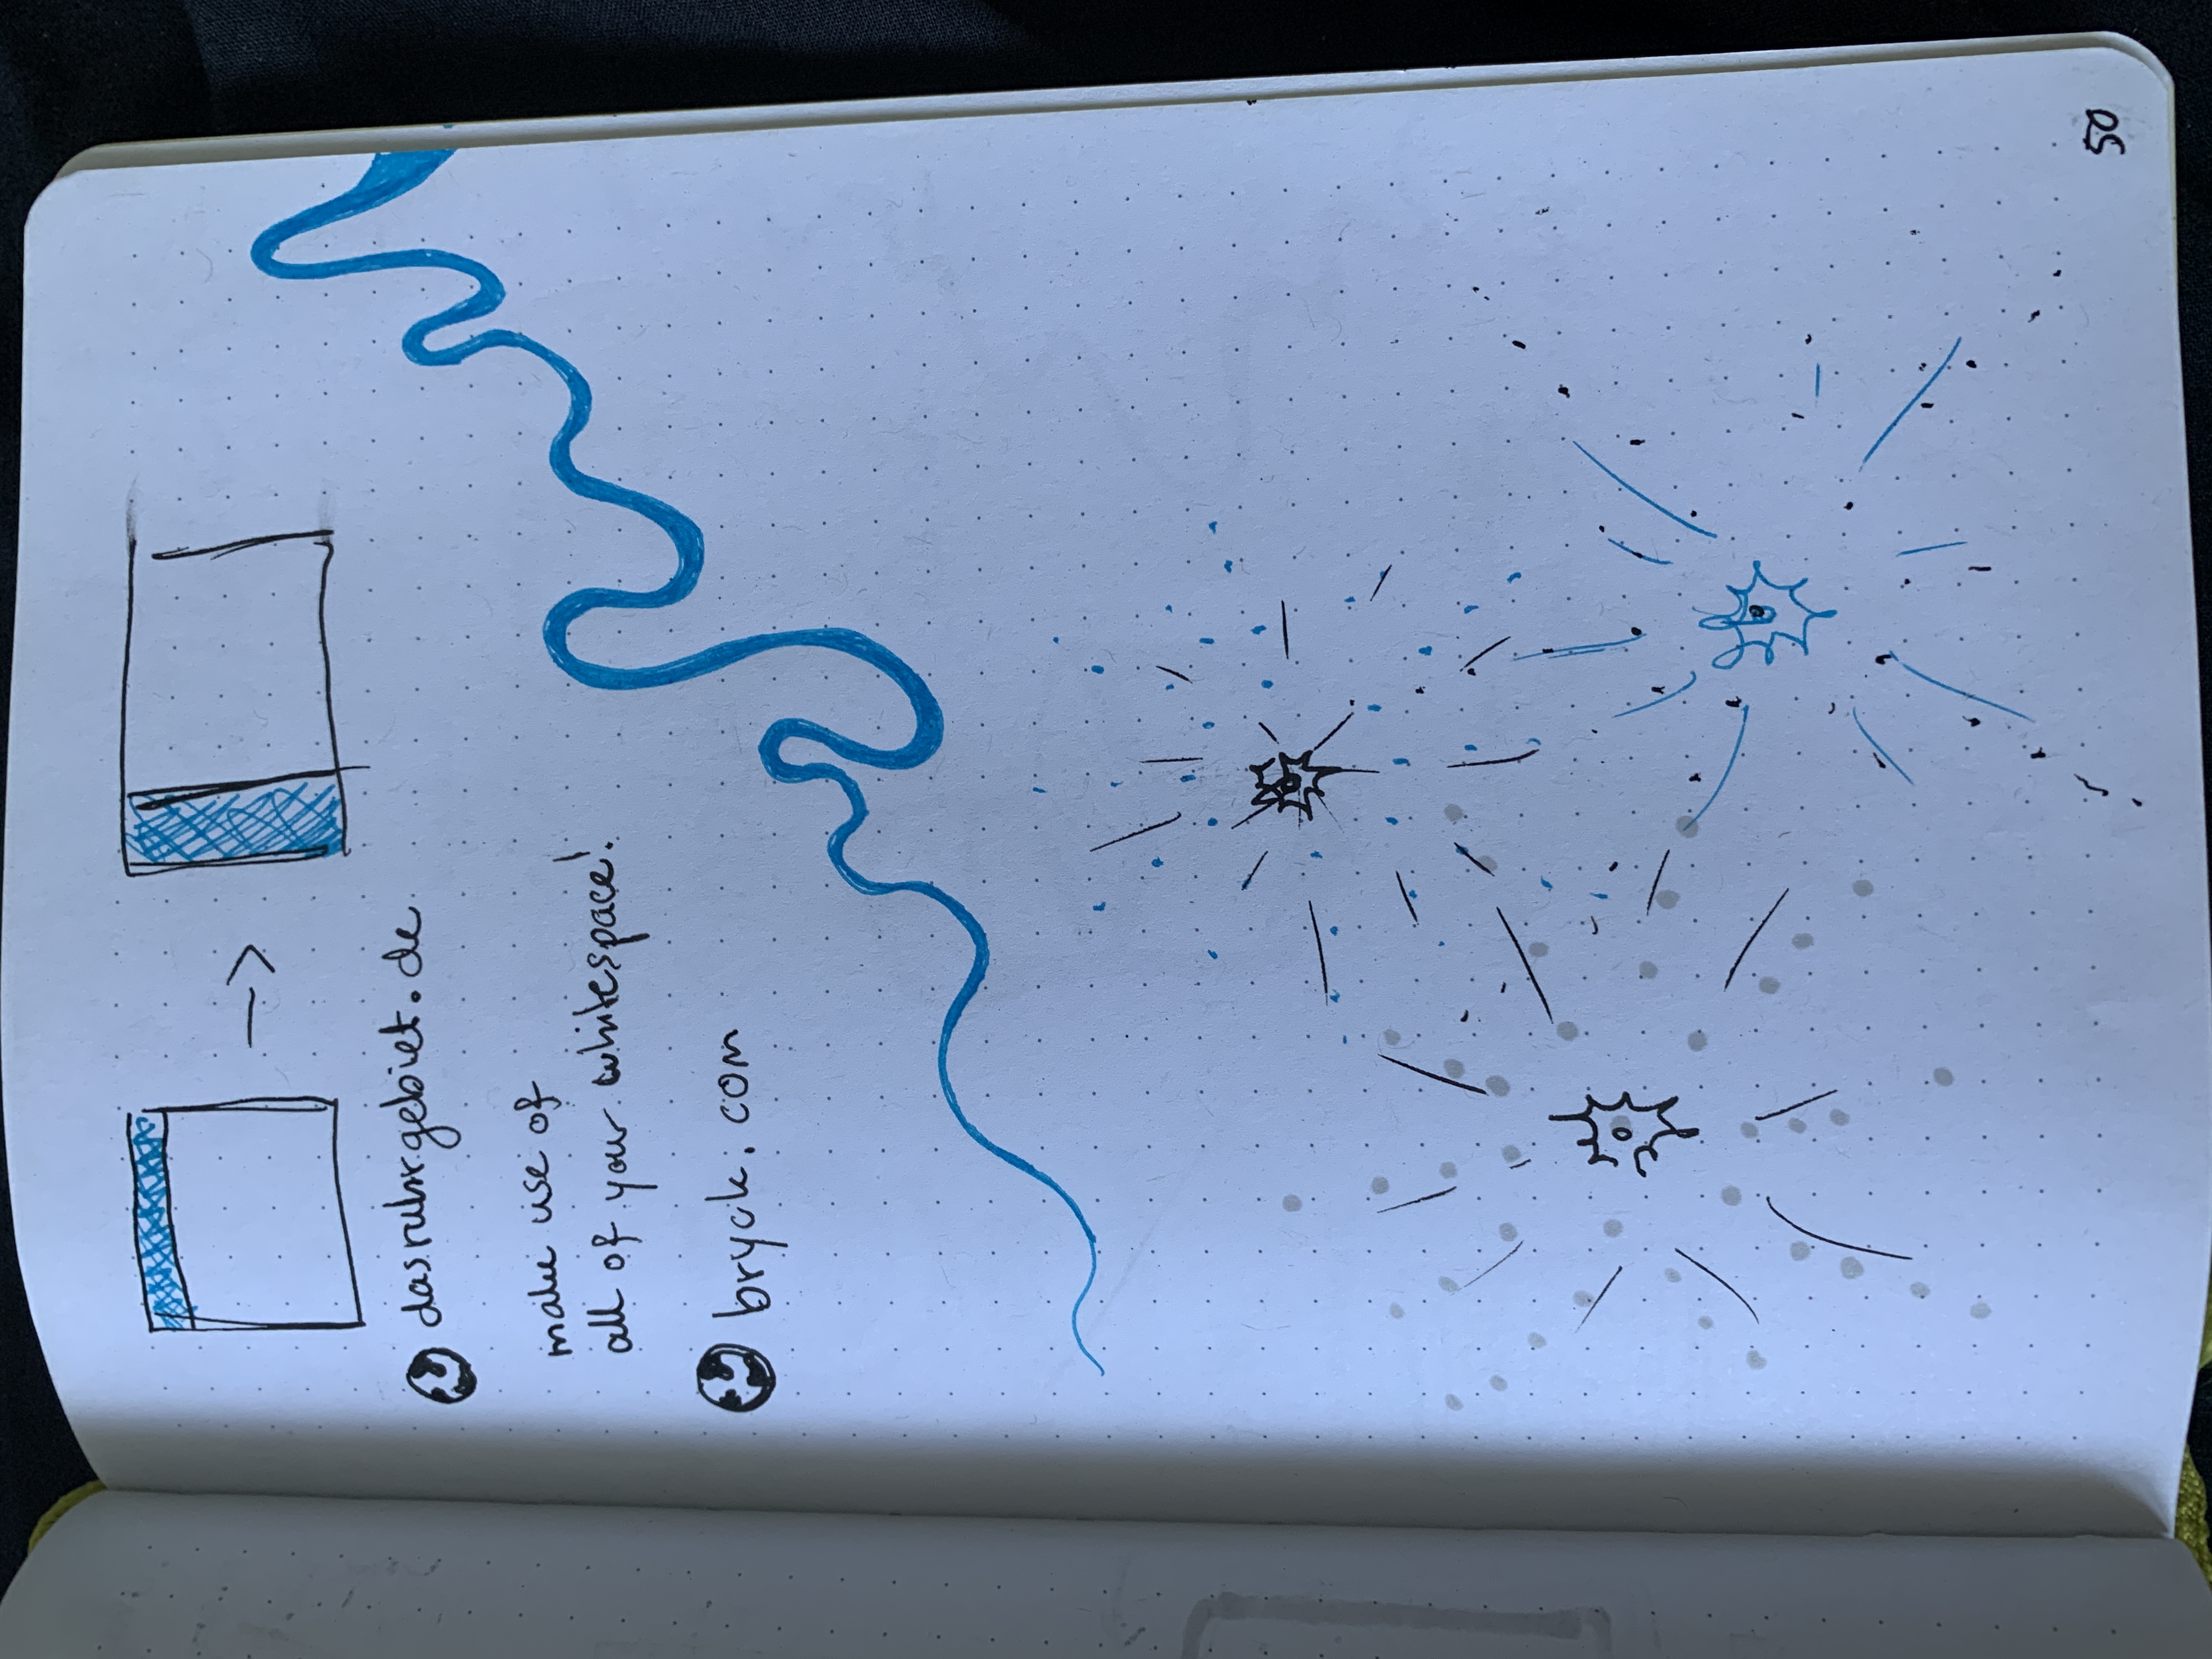 dasruhrgebiet.de
make use of
all of your whitespace!
bryck.com
50